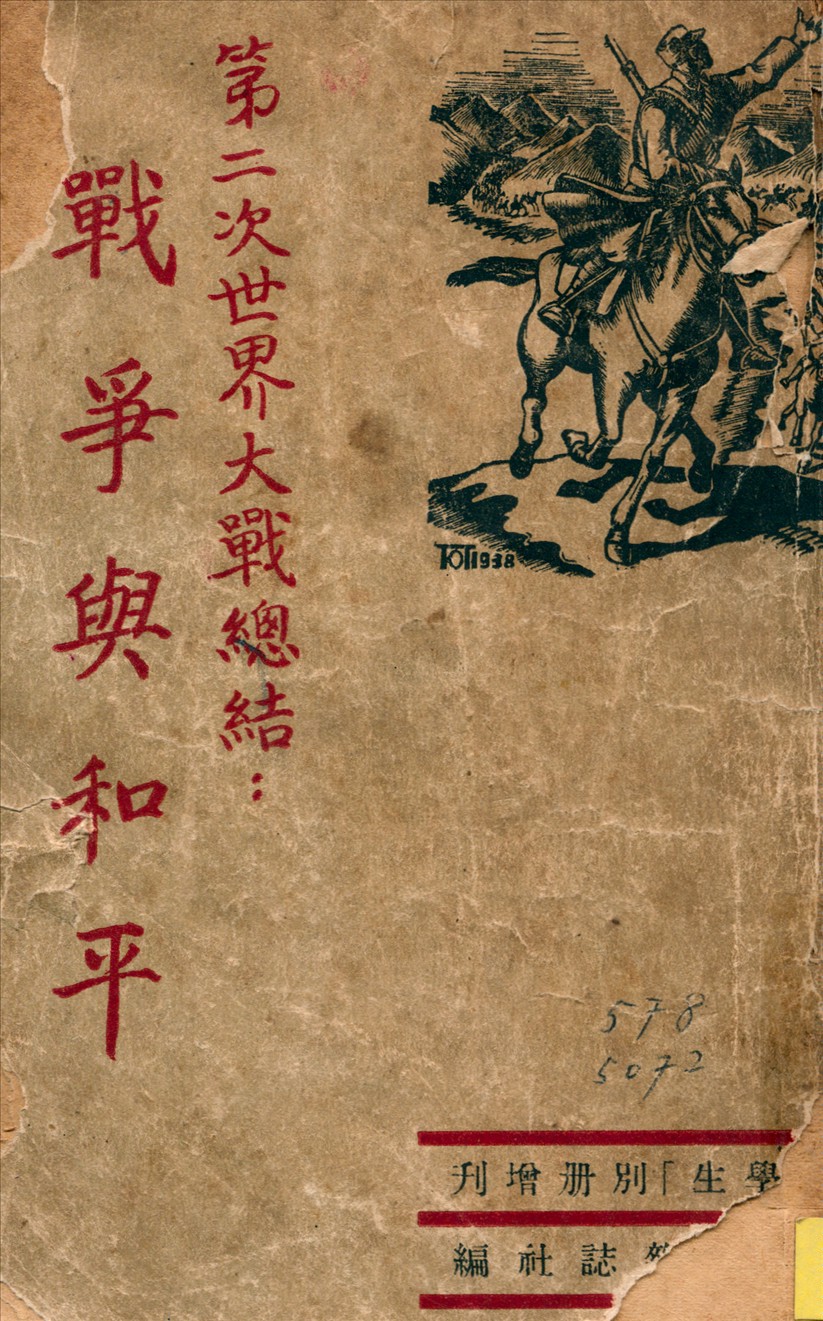 第二次世界大戰總結：
戰爭與和平
1938
578
5072
學生」別册增刊
誌社編